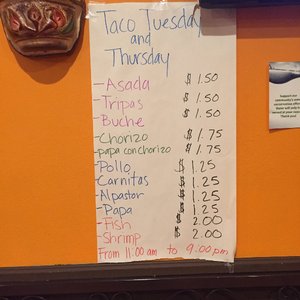 Taco Tuesday
and
Thursday
-Asada $ 1.50
-Tripas $ 1.50
-Buche $ 1.50
-Chorizo $ 1.75
-papa con chorizo $ 1.75
-Pollo $ 1.25
-Carnitas $ 1.25
-Alpastor $ 1.25
-Papa $ 1.25
-Fish $ 2.00
-Shrimp $ 2.00
From 11:00 am to 9:00 pm
Support our
Thank you!